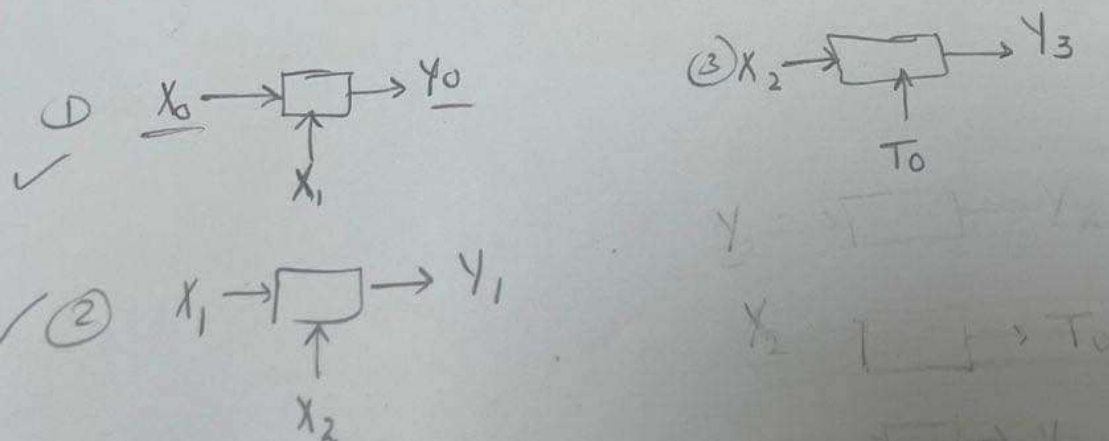 ① X₀ → → Y₀
X₁
② X₁ → → Y₁
X₂
③ X₂ → → Y₃
T₀